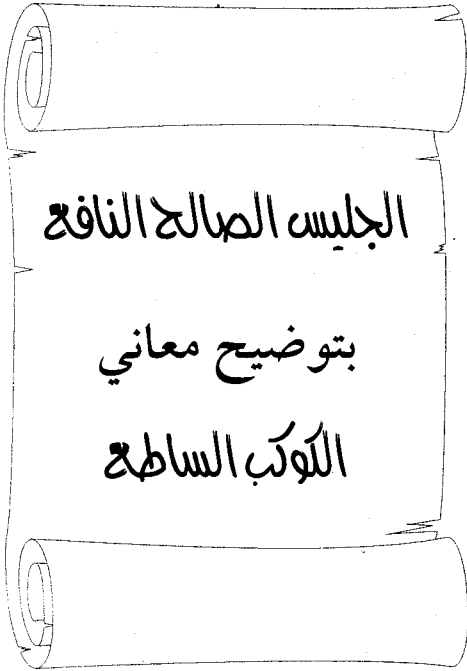 الجليس الصالح النافع
بتوضيح معاني
الكوكب الساطع